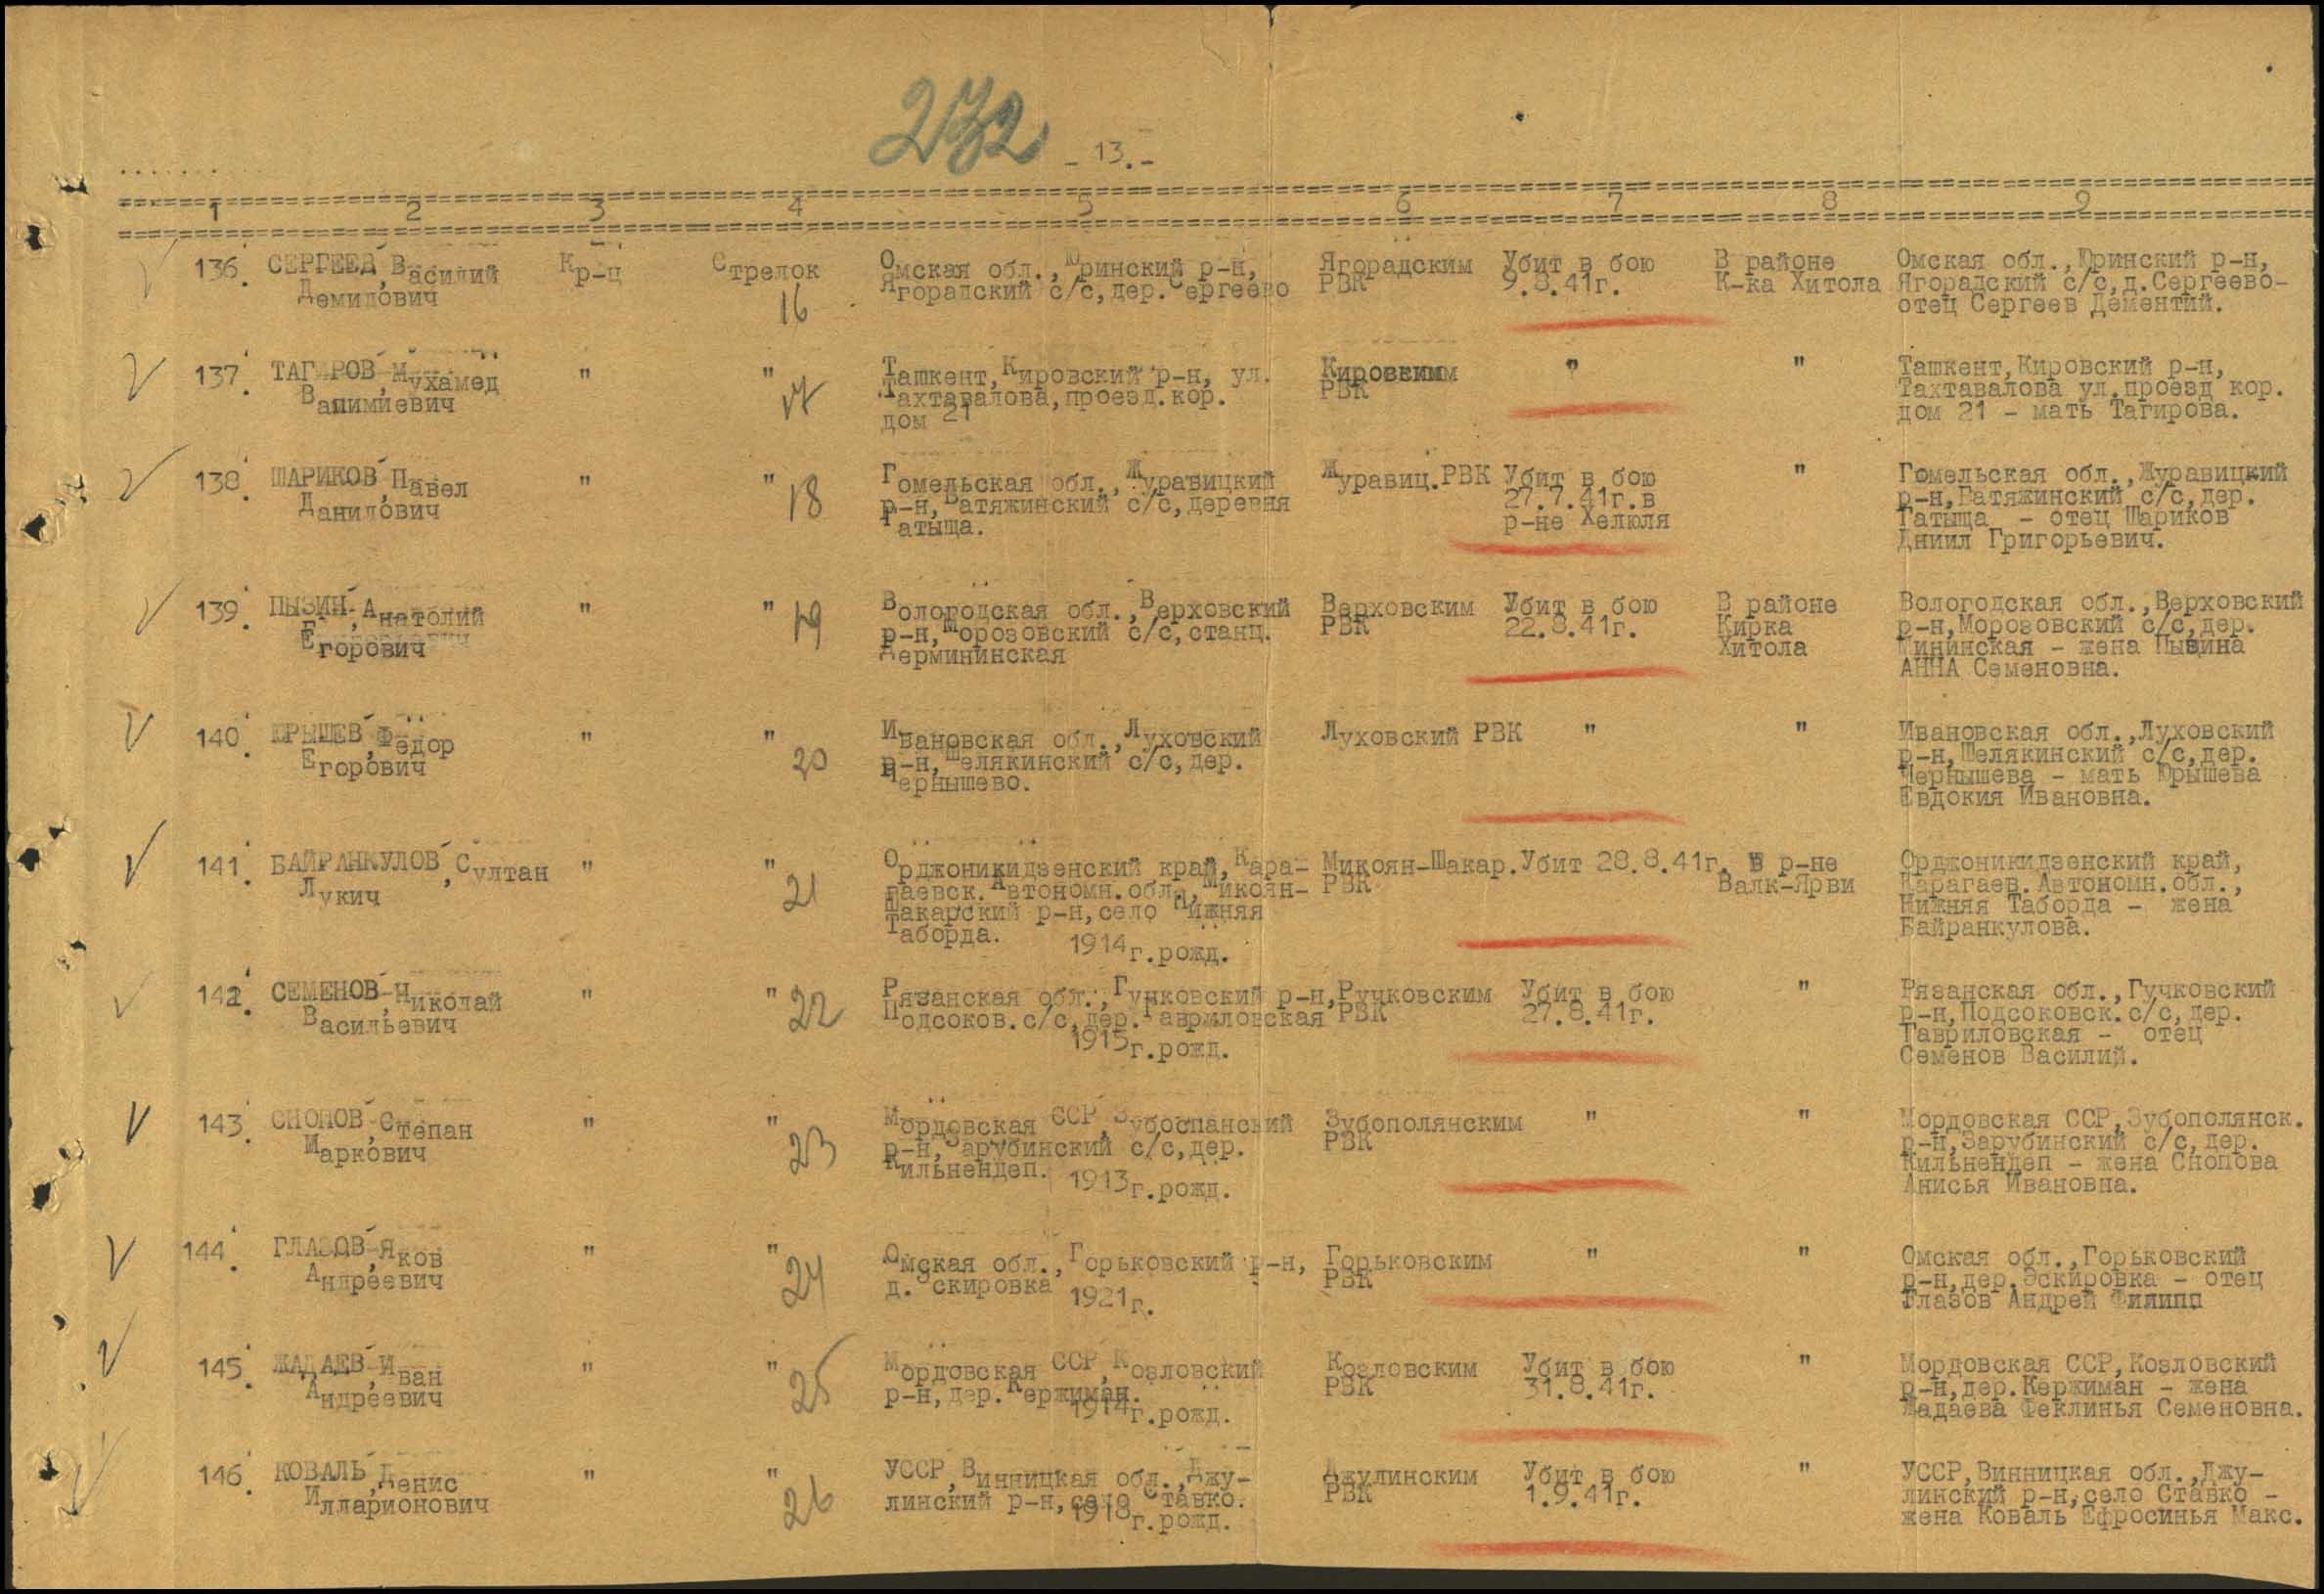 272 - 13. -
1 2 3 4 5 6 7 8 9
136. СЕРГЕЕВ, Василий Кр-ц Стрелок Омская обл., Юринский р-н, Ягорадским Убит в бою В районе Омская обл., Юринский р-н,
Демидович 16 Ягорадский с/с, дер. Сергеево РВК 9.8.41г. К-ка Хитола Ягорадский с/с, д. Сергеево-
отец Сергеев Дементий.
137. ТАГИРОВ, Мухамед " " Ташкент, Кировский р-н, ул. Кировским " " Ташкент, Кировский р-н,
Валимиевич 17 Тахтавалова, проезд. кор. РВК Тахтавалова ул. проезд кор.
дом 21 дом 21 - мать Тагирова.
138. ШАРИКОВ, Павел " " 18 Гомельская обл., Журавицкий Журавиц. РВК Убит в бою " Гомельская обл., Журавицкий
Данилович р-н, Ватяжинский с/с, деревня 27.7.41г. в р-н, Гатяжинский с/с, дер.
Гатыща. р-не Хелюля Гатыща - отец Шариков
Дниил Григорьевич.
139. ПЫЗИН, Анатолий " " 19 Вологодская обл., Верховский Верховским Убит в бою В районе Вологодская обл., Верховский
Егорович р-н, Морозовский с/с, станц. РВК 22.8.41г. Кирка р-н, Морозовский с/с, дер.
Дермининская Хитола Мининская - жена Пызина
АННА Семеновна.
140. ЮРЫШЕВ, Фёдор " " 20 Ивановская обл., Луховский Луховский РВК " " Ивановская обл., Луховский
Егорович р-н, Шелякинский с/с, дер. р-н, Шелякинский с/с, дер.
Чернышево. Чернышева - мать Юрышева
Евдокия Ивановна.
141. БАЙРАНКУЛОВ, Султан " " 21 Орджоникидзенский край, Кара- Микоян-Шакар. Убит 28.8.41г. В р-не Орджоникидзенский край,
Лукич гаевск. Автономн. обл., Микоян- РВК Валк-Ярви Карагаев. Автономн. обл.,
Шакарский р-н, село Нижняя Нижняя Таборда - жена
Таборда. 1914г. рожд. Байранкулова.
142. СЕМЕНОВ, Николай " " 22 Рязанская обл., Гучковский р-н, Ручковским Убит в бою " Рязанская обл., Гучковский
Васильевич Подсоков. с/с, дер. Гавриловская РВК 27.8.41г. р-н, Подсоковск. с/с, дер.
1915г. рожд. Гавриловская - отец
Семенов Василий.
143. СНОПОВ, Степан " " 23 Мордовская ССР, Зубоспанский Зубополянским " " Мордовская ССР, Зубополянск.
Маркович р-н, Зарубинский с/с, дер. РВК р-н, Зарубинский с/с, дер.
Кильнендеп. 1913г. рожд. Кильнендеп - жена Снопова
Анисья Ивановна.
144. ГЛАЗОВ, Яков " " 24 Омская обл., Горьковский р-н, Горьковским " " Омская обл., Горьковский
Андреевич д. Эскировка 1921г. РВК р-н, дер. Эскировка - отец
Глазов Андрей Филипп
145. ЖАДАЕВ, Иван " " 25 Мордовская ССР, Козловский Козловским Убит в бою " Мордовская ССР, Козловский
Андреевич р-н, дер. Кержиман. РВК 31.8.41г. р-н, дер. Кержиман - жена
1914г. рожд. Жадаева Феклинья Семеновна.
146. КОВАЛЬ, Денис " " 26 УССР, Винницкая обл., Джу- Джулинским Убит в бою " УССР, Винницкая обл., Джу-
Илларионович линский р-н, село Ставко. РВК 1.9.41г. линский р-н, село Ставко -
1918г. рожд. жена Коваль Ефросинья Макс.